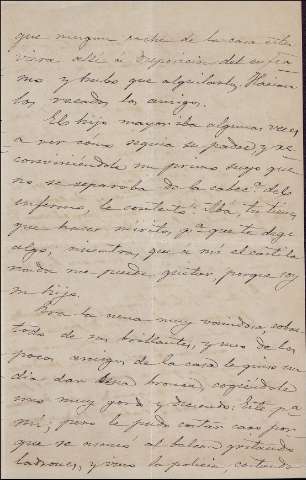 que ningun coche de la casa estu-
viera allí a disposición del enfer-
mo y hubo que alquilarlos. Hacian
los recados los amigos.
El hijo mayor iba algunas veces
a ver como seguia su padre y re-
conviniéndole un primo suyo que
no se separaba de la cabec.ª del
enfermo, le contestó: tú, tu tienes
que hacer méritos p.ª que te deje
algo, mientras que a mi el
no me puede quitar porque soy
su hijo.
Era la muy sobre
todo de sus brillantes, y uno de los
pocos amigos de la casa le quiso un
dia dar una broma cogiéndole
uno muy gordo y diciendo: Este p.ª
mí; pero le pudo costar caro por
que se asomó al balcon gritando
ladrones, y vino la policia,